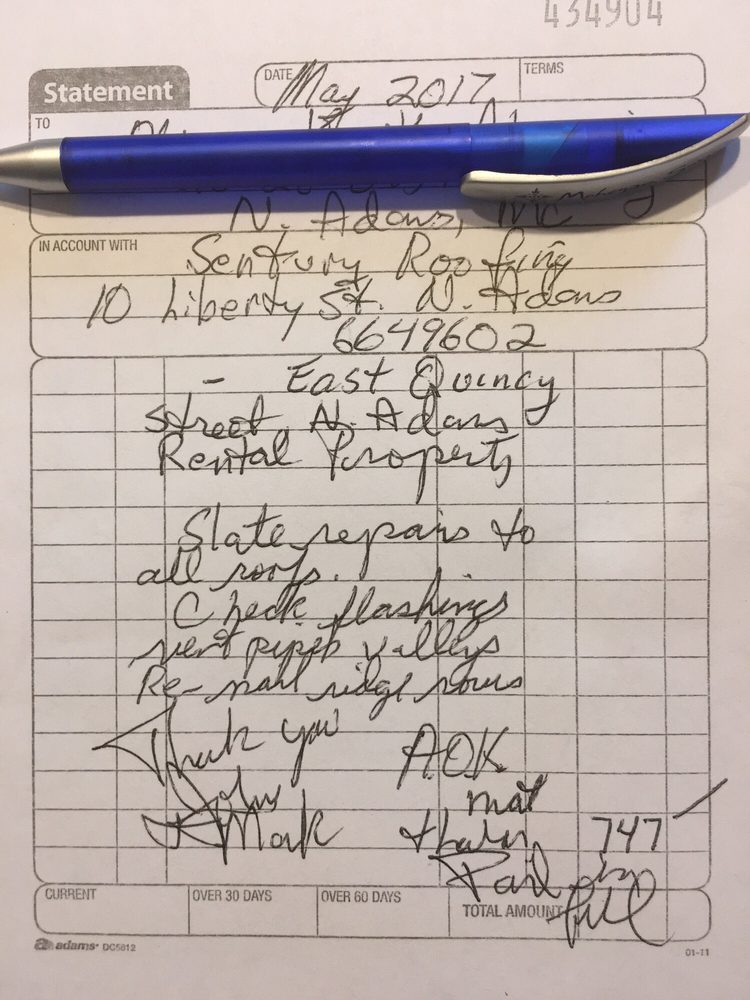 434904
Statement
DATE May 2017
TERMS
TO
N. Adams,
IN ACCOUNT WITH
Sentury Roofing
10 Liberty St. N. Adams
6649602
- East Quincy
Street, N. Adams
Rental Property
Slate repairs to
all roofs.
Check flashings
vent pipes valleys
Re-nail ridge rows
Thank you
A.OK
John
mat
& Mark
+ labor 747
Paid in
full
CURRENT
OVER 30 DAYS
OVER 60 DAYS
TOTAL AMOUNT
adams DC5812
01-11